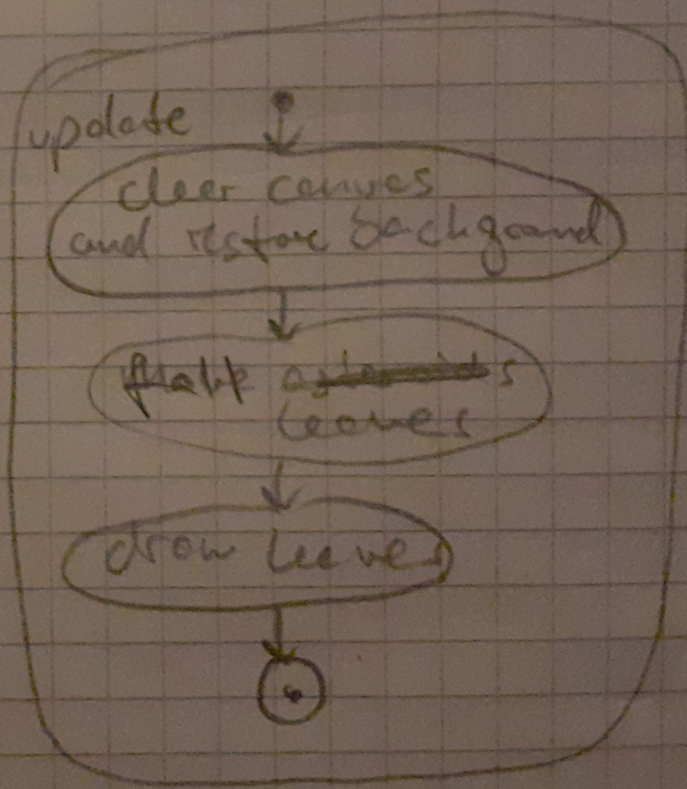 update
clear canvas
and restore background
leaves
draw leaves